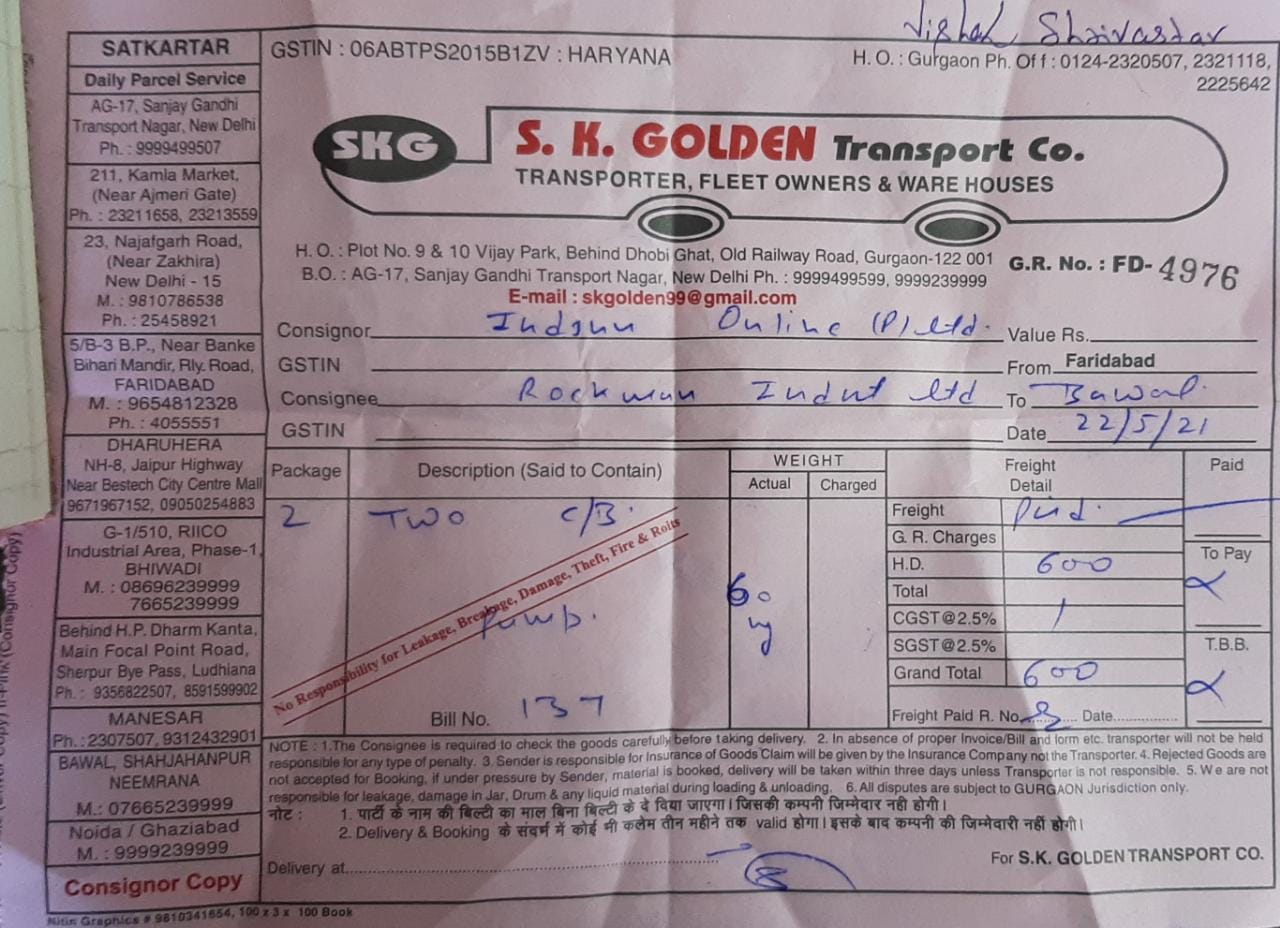 Vishal Shrivastav
SATKARTAR
Daily Parcel Service
AG-17, Sanjay Gandhi
Transport Nagar, New Delhi
Ph. : 9999499507
211, Kamla Market,
(Near Ajmeri Gate)
Ph. : 23211658, 23213559
23, Najafgarh Road,
(Near Zakhira)
New Delhi - 15
M. : 9810786538
Ph. : 25458921
5/B-3 B.P., Near Banke
Bihari Mandir, Rly. Road,
FARIDABAD
M. : 9654812328
Ph. : 4055551
DHARUHERA
NH-8, Jaipur Highway
Near Bestech City Centre Mall
9671967152, 09050254883
G-1/510, RIICO
Industrial Area, Phase-1,
BHIWADI
M. : 08696239999
7665239999
Behind H.P. Dharm Kanta,
Main Focal Point Road,
Sherpur Bye Pass, Ludhiana
Ph. : 9356822507, 8591599902
MANESAR
Ph.:2307507, 9312432901
BAWAL, SHAHJAHANPUR
NEEMRANA
M.: 07665239999
Noida / Ghaziabad
M. : 9999239999
Consignor Copy
GSTIN : 06ABTPS2015B1ZV : HARYANA
H. O. : Gurgaon Ph. Off : 0124-2320507, 2321118,
2225642
SKG
S. K. GOLDEN Transport Co.
TRANSPORTER, FLEET OWNERS & WARE HOUSES
H. O. : Plot No. 9 & 10 Vijay Park, Behind Dhobi Ghat, Old Railway Road, Gurgaon-122 001
B.O. : AG-17, Sanjay Gandhi Transport Nagar, New Delhi Ph. : 9999499599, 9999239999
E-mail : skgolden99@gmail.com
G.R. No. : FD- 4976
Consignor Online (P) Ltd. Value Rs.
GSTIN From Faridabad
Consignee Rockman Indust Ltd To Bawal.
GSTIN Date 22/5/21
Package Description (Said to Contain) WEIGHT Freight Detail Paid
Actual Charged
2 Two C/B.
Pump.
60 kg
No Responsibility for Leakage, Breakage, Damage, Theft, Fire & Roits
Bill No. 137
Freight Paid.
G. R. Charges
H.D. 600
Total
CGST@2.5% /
SGST@2.5%
Grand Total 600
Freight Paid R. No. Date
To Pay
T.B.B.
NOTE : 1.The Consignee is required to check the goods carefully before taking delivery. 2. In absence of proper Invoice/Bill and form etc. transporter will not be held
responsible for any type of penalty. 3. Sender is responsible for Insurance of Goods Claim will be given by the Insurance Company not the Transporter. 4. Rejected Goods are
not accepted for Booking, if under pressure by Sender, material is booked, delivery will be taken within three days unless Transporter is not responsible. 5. We are not
responsible for leakage, damage in Jar, Drum & any liquid material during loading & unloading. 6. All disputes are subject to GURGAON Jurisdiction only.
नोट : 1. पार्टी के नाम की बिल्टी का माल बिना बिल्टी के दे दिया जाएगा। जिसकी कम्पनी जिम्मेदार नही होगी।
2. Delivery & Booking के संदर्भ में कोई भी कलेम तीन महीने तक valid होगा। इसके बाद कम्पनी की जिम्मेदारी नहीं होगी।
Delivery at
For S.K. GOLDEN TRANSPORT CO.
Nitin Graphics # 9810341654, 100 x 3 x 100 Book
(Consignor Copy)